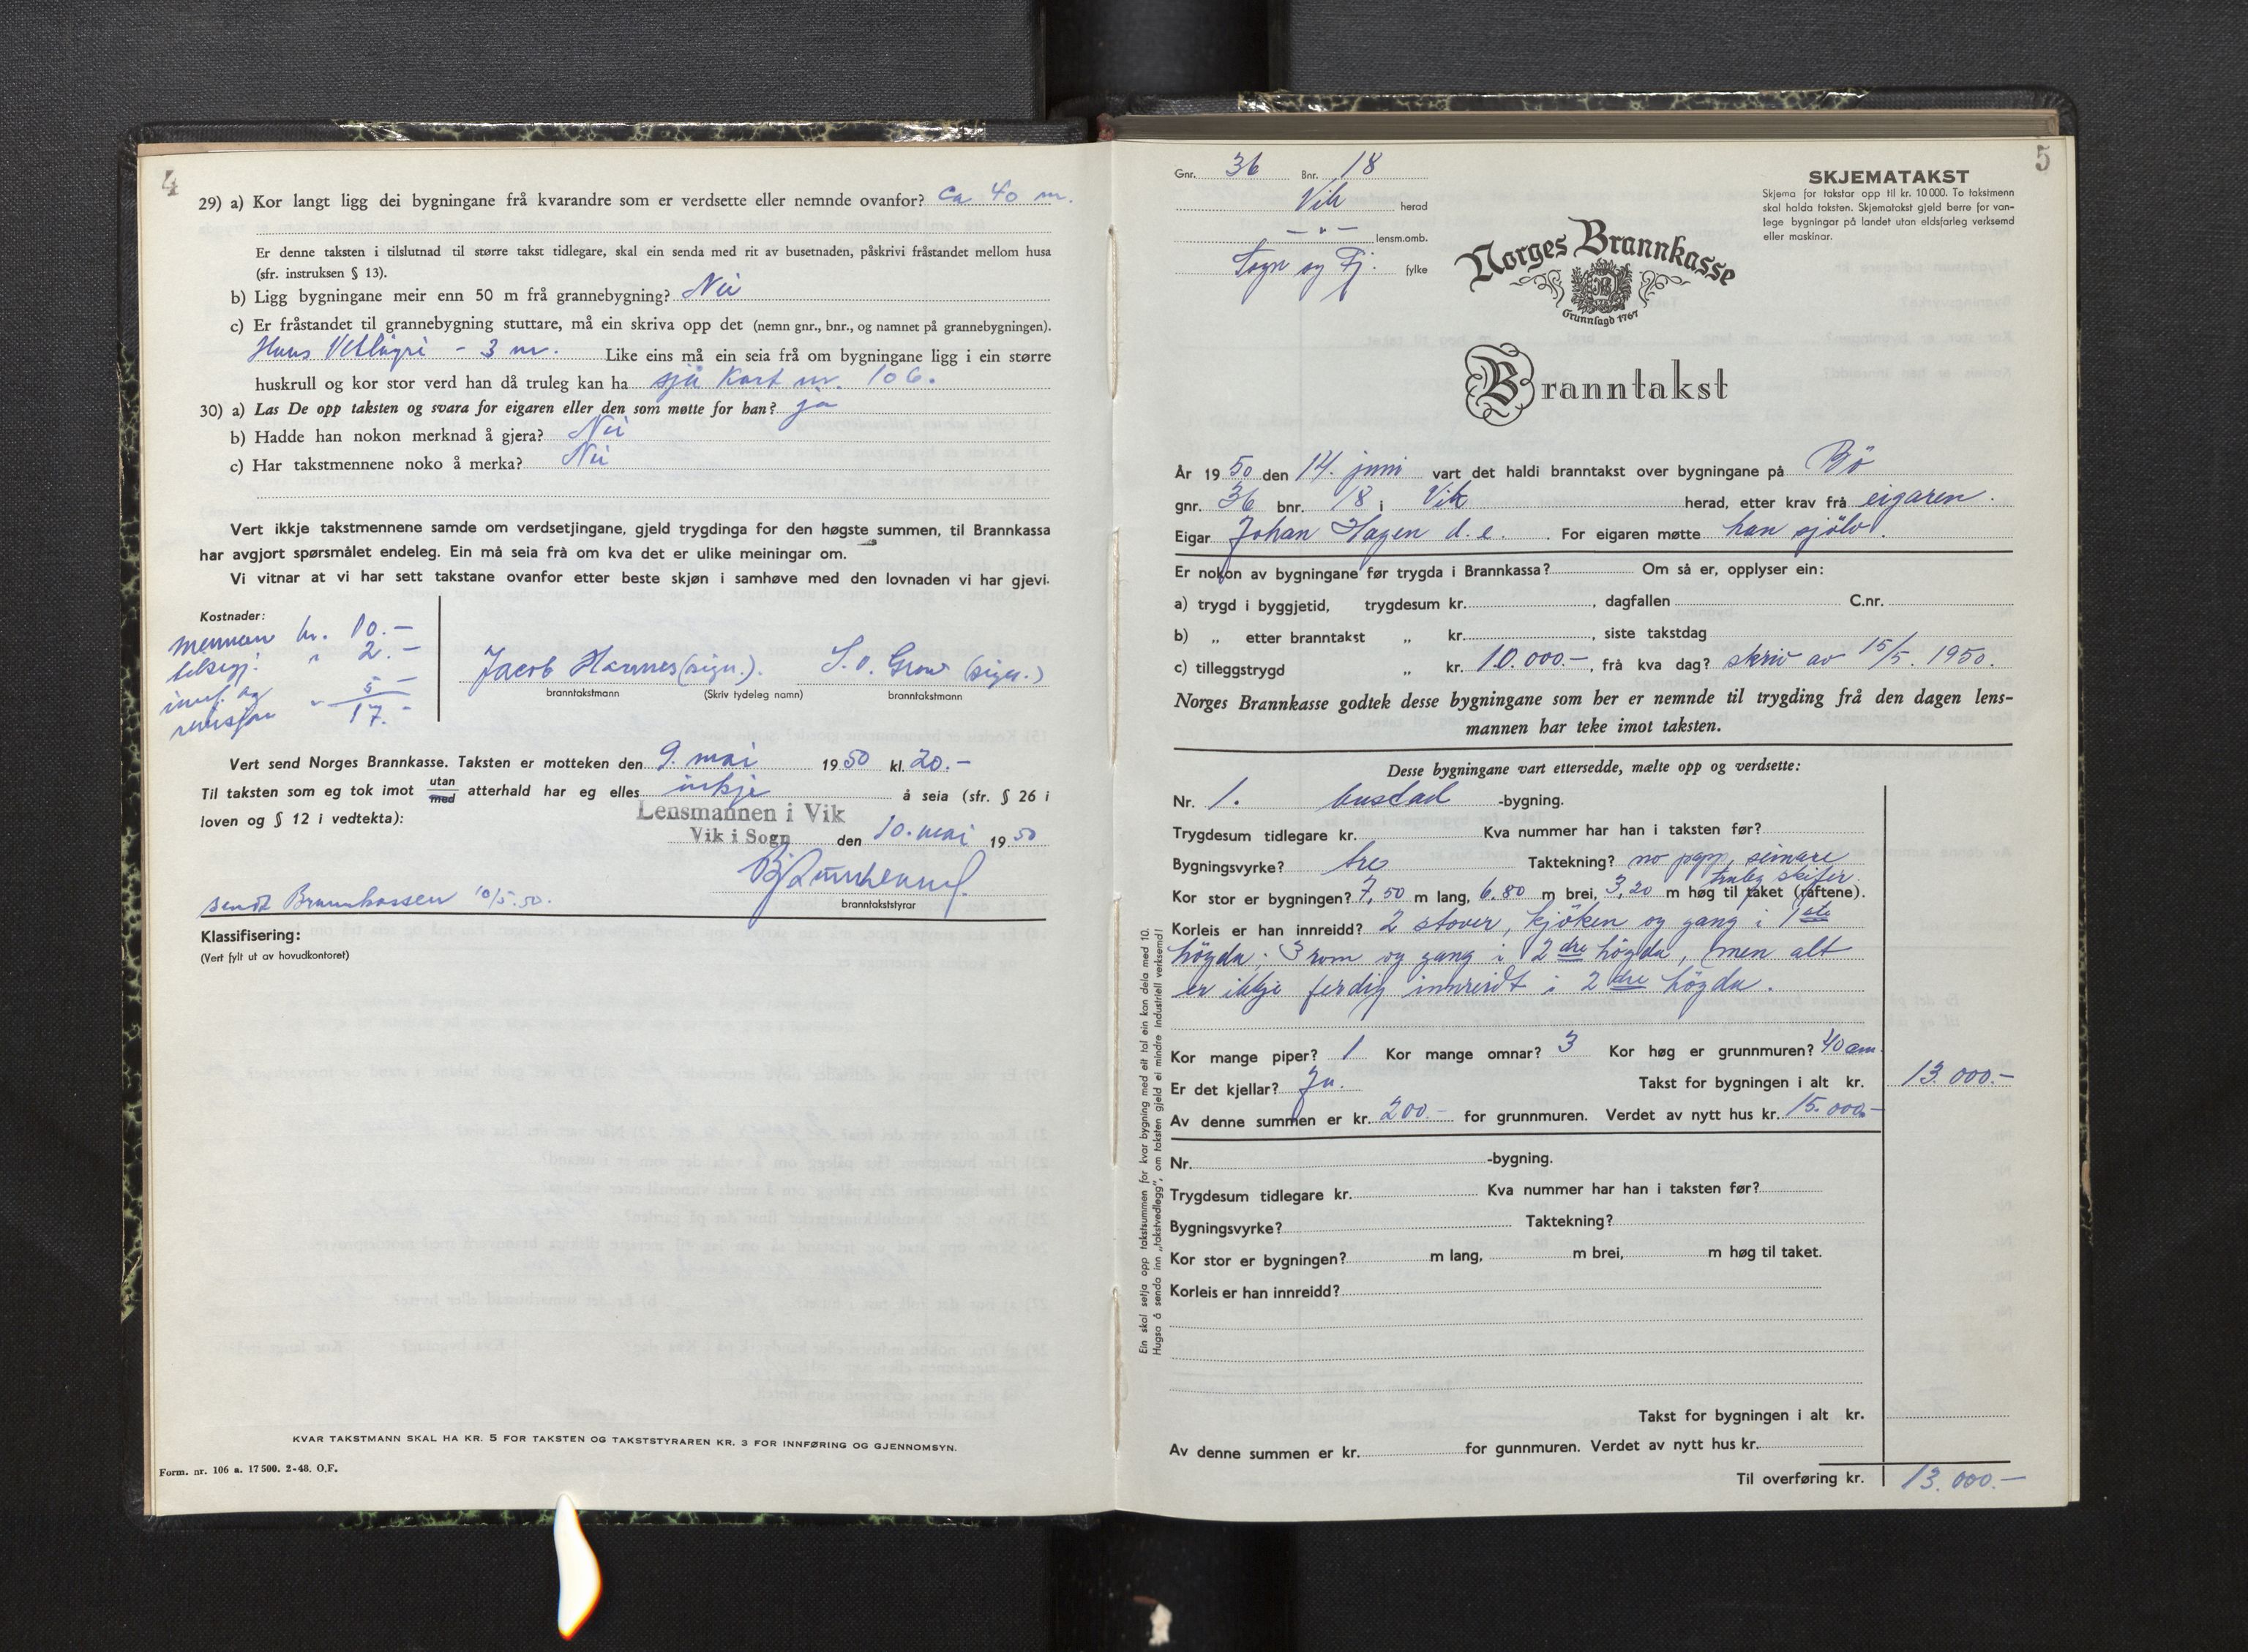 4
29) a) Kor langt ligg dei bygningane frå kvarandre som er verdsette eller nemnde ovanfor? ca 40 m.
Er denne taksten i tilslutnad til større takst tidlegare, skal ein senda med rit av busetnaden, påskrivi fråstandet mellom husa
(sfr. instruksen § 13).
b) Ligg bygningane meir enn 50 m frå grannebygning? Nei
c) Er fråstandet til grannebygning stuttare, må ein skriva opp det (nemn gnr., bnr., og namnet på grannebygningen).
- 3 m. Like eins må ein seia frå om bygningane ligg i ein større
huskrull og kor stor verd han då truleg kan ha sjå kart nr. 106.
30) a) Las De opp taksten og svara for eigaren eller den som møtte for han? ja
b) Hadde han nokon merknad å gjera? Nei
c) Har takstmennene noko å merka? Nei
Vert ikkje takstmennene samde om verdsetjingane, gjeld trygdinga for den høgste summen, til Brannkassa
har avgjort spørsmålet endeleg. Ein må seia frå om kva det er ulike meiningar om.
Vi vitnar at vi har sett takstane ovanfor etter beste skjøn i samhøve med den lovnaden vi har gjevi.
Kostnader:
mennene kr. 10.-
" 2.-
innf. og 5 -
revisjon " 17.-
Jacob Hannes (sign.). S. O. (sign.)
branntakstmann (Skriv tydeleg namn) branntakstmann
Vert send Norges Brannkasse. Taksten er motteken den 9. mai 1950 kl. 20.-
Til taksten som eg tok imot utan med atterhald har eg elles inkje å seia (sfr. § 26 i
loven og § 12 i vedtekta):
Lensmannen i Vik
Vik i Sogn den 10. mai 1950
branntakststyrar
sendt Brannkassen 10/5.50.
Klassifisering:
(Vert fylt ut av hovudkontoret)
KVAR TAKSTMANN SKAL HA KR. 5 FOR TAKSTEN OG TAKSTSTYRAREN KR. 3 FOR INNFØRING OG GJENNOMSYN.
Form. nr. 106 a. 17 500. 2-48. O.F.
5
Gnr. 36 Bnr. 18
Vik herad
- " - lensm.omb.
Sogn og Fj. fylke
SKJEMATAKST
Skjema for takstar opp til kr. 10 000. To takstmenn
skal halda taksten. Skjematakst gjeld berre for van-
lege bygningar på landet utan eldsfarleg verksemd
eller maskinar.
Norges Brannkasse
Grunnlagd 1767
Branntakst
År 1950 den 14. juni vart det haldi branntakst over bygningane på Bö
gnr. 36 bnr. 18 i Vik herad, etter krav frå eigaren.
Eigar Johan Hagen d. e. For eigaren møtte han sjölv.
Er nokon av bygningane før trygda i Brannkassa? Om så er, opplyser ein:
a) trygd i byggjetid, trygdesum kr. , dagfallen C.nr.
b) „ etter branntakst „ kr. , siste takstdag
c) tilleggstrygd „ kr. 10.000.-, frå kva dag? skriv av 15/5. 1950.
Norges Brannkasse godtek desse bygningane som her er nemnde til trygding frå den dagen lens-
mannen har teke imot taksten.
Desse bygningane vart ettersedde, mælte opp og verdsette:
Nr. 1. bustad -bygning.
Trygdesum tidlegare kr. Kva nummer har han i taksten før?
Bygningsvyrke? tre Taktekning? no papp, seinare
truleg skifer.
Kor stor er bygningen? 7,50 m lang, 6.80 m brei, 3,20 m høg til taket (raftene).
Korleis er han innreidd? 2 stover, kjöken og gang i 1ste
högda; 3 rom og gang i 2dre högda, men alt
er ikkje ferdig innreidt i 2dre högda.
Kor mange piper? 1 Kor mange omnar? 3 Kor høg er grunnmuren? 40 cm.
Er det kjellar? Ja. Takst for bygningen i alt kr. 13.000.-
Av denne summen er kr. 200.- for grunnmuren. Verdet av nytt hus kr. 15.000.-
Nr. -bygning.
Trygdesum tidlegare kr. Kva nummer har han i taksten før?
Bygningsvyrke? Taktekning?
Kor stor er bygningen? m lang, m brei, m høg til taket.
Korleis er han innreidd?
Takst for bygningen i alt kr.
Av denne summen er kr. for gunnmuren. Verdet av nytt hus kr.
Til overføring kr. 13.000.-
Ein skal setja opp takstsummen for kvar bygning med eit tal ein kan dela med 10.
Hugsa å senda inn „takstvedlegg", om taksten gjeld ei mindre industriell verksemd!